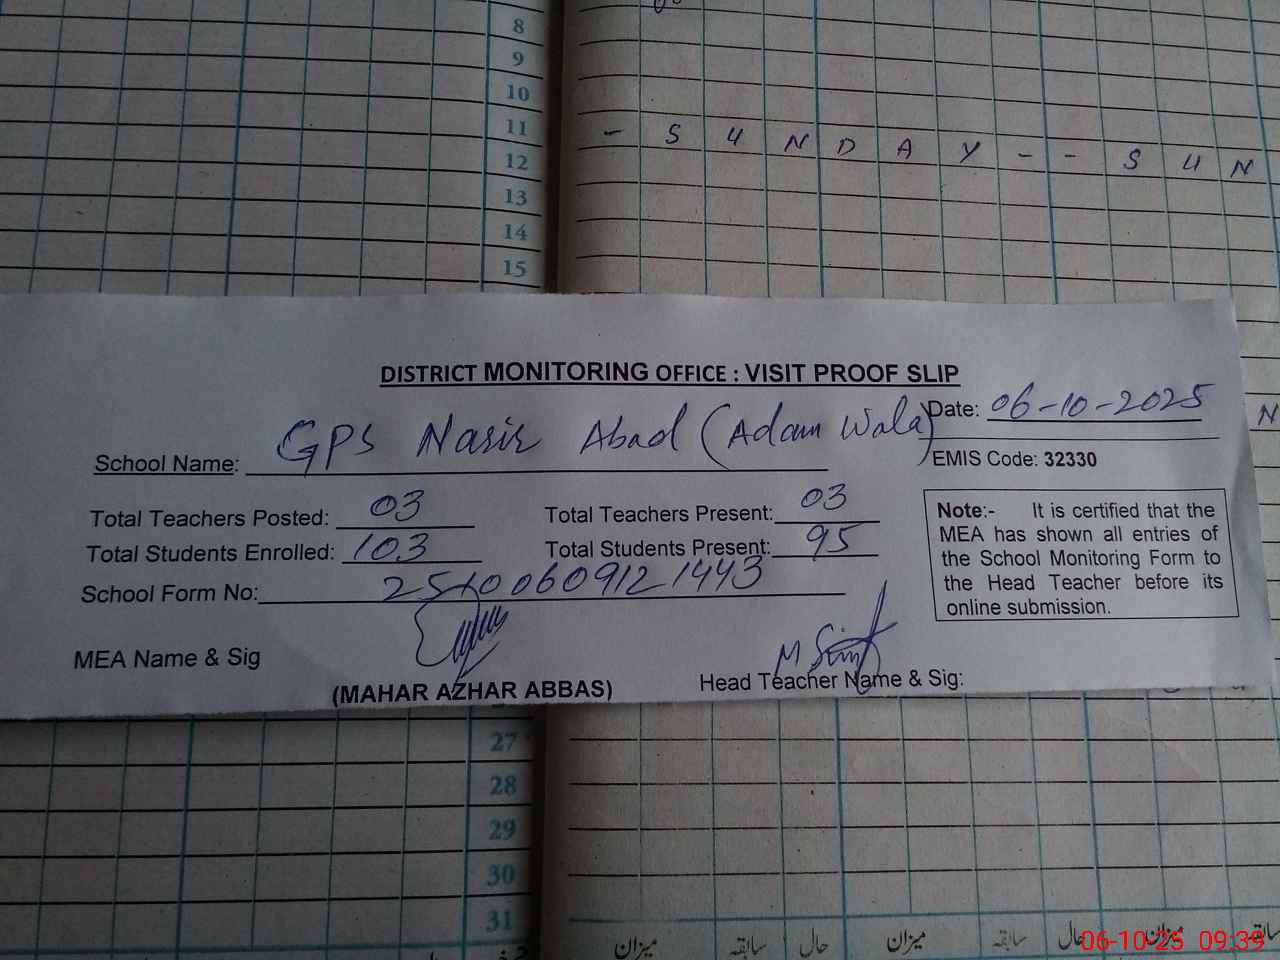 8
9
10
11
- S U N D A Y - - S U N
12
13
14
15
DISTRICT MONITORING OFFICE : VISIT PROOF SLIP
Date: 06-10-2025
School Name: GPS Nasir Abad (Adam Wala)
EMIS Code: 32330
Total Teachers Posted: 03 Total Teachers Present: 03
Total Students Enrolled: 103 Total Students Present: 95
School Form No: 25100609121443
Note:- It is certified that the
MEA has shown all entries of
the School Monitoring Form to
the Head Teacher before its
online submission.
MEA Name & Sig
(MAHAR AZHAR ABBAS) Head Teacher Name & Sig:
N
27
28
29
30
31
میزان سابقہ حال میزان سابقہ حال میزان سابقہ
06-10-25 09:39